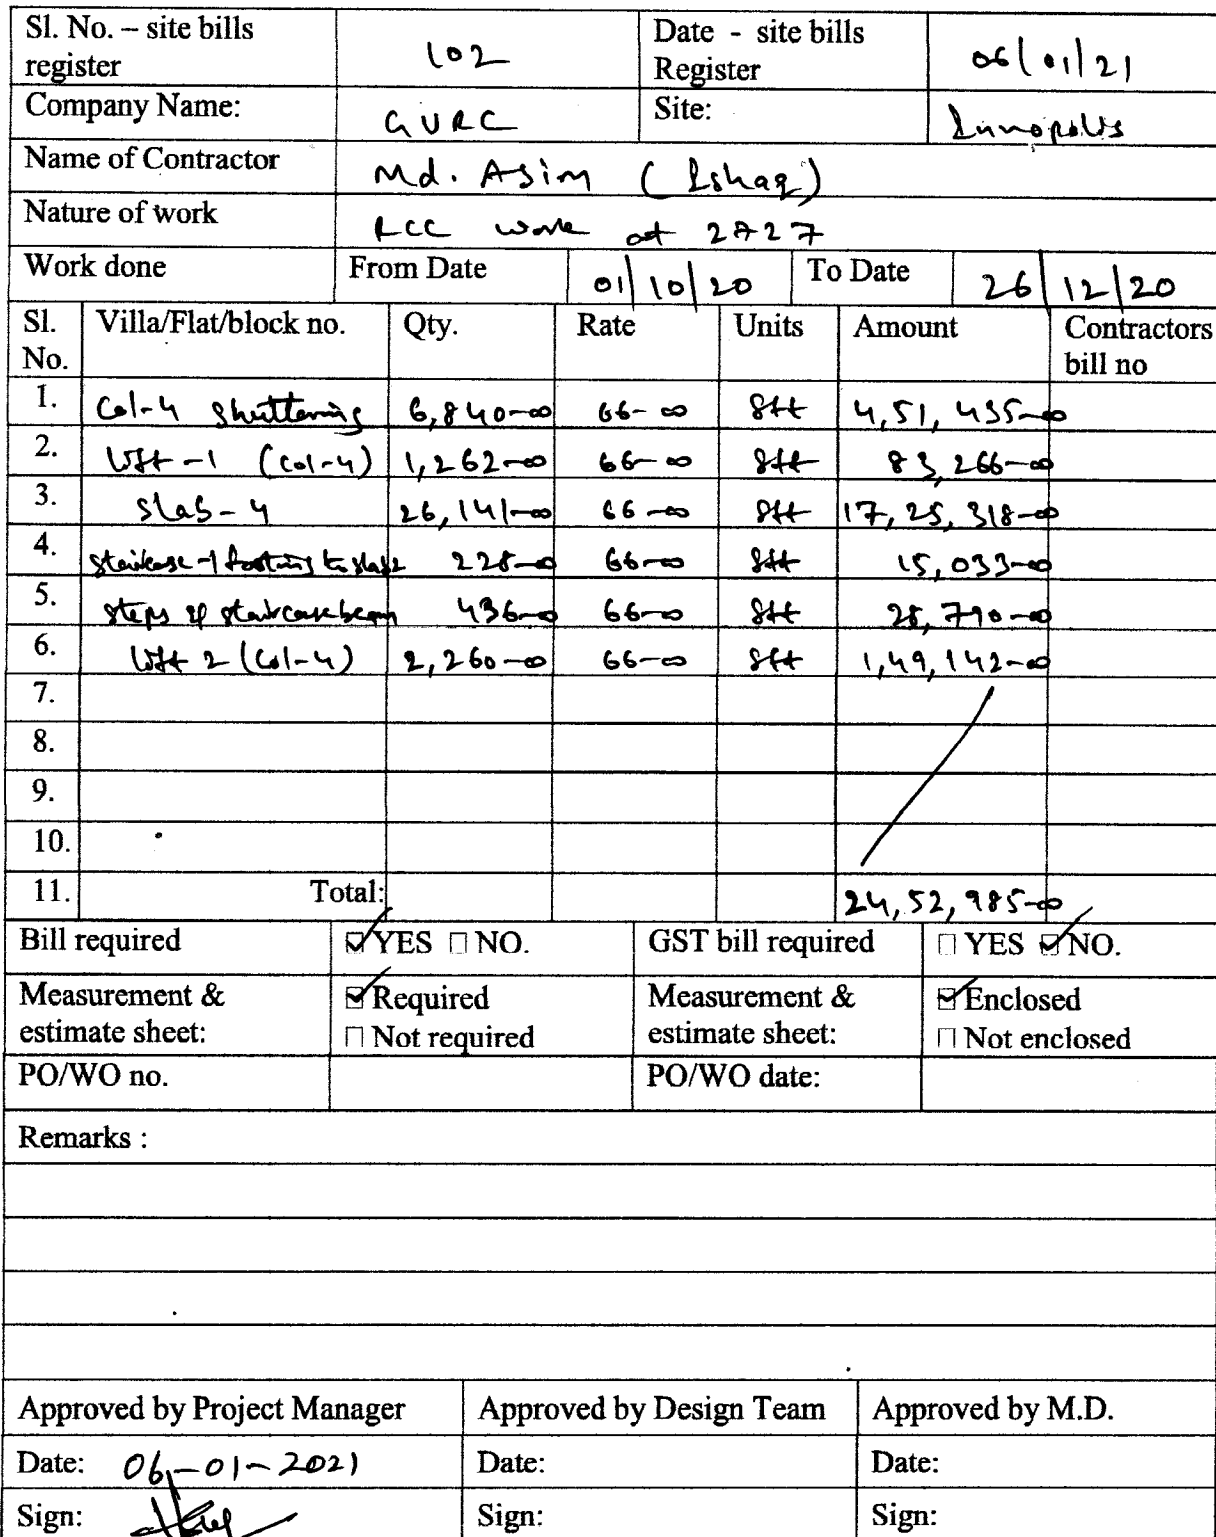 Sl. No. – site bills register 102 Date - site bills Register 06/01/21
Company Name: GVRC Site: Innopolis
Name of Contractor Md. Asim (Ishaq)
Nature of work RCC work at 2727
Work done From Date 01/10/20 To Date 26/12/20
Sl. No. Villa/Flat/block no. Qty. Rate Units Amount Contractors bill no
1. Col-4 shuttering 6,840-00 66-00 Sft 4,51,435-00
2. Lift-1 (Col-4) 1,262-00 66-00 Sft 83,266-00
3. Slab-4 26,141-00 66-00 Sft 17,25,318-00
4. Staircase-1 footing to slab2 228-00 66-00 Sft 15,033-00
5. Steps of staircase beam 436-00 66-00 Sft 28,790-00
6. Lift 2 (Col-4) 2,260-00 66-00 Sft 1,49,142-00
7.
8.
9.
10.
11. Total: 24,52,985-00
Bill required ☑ YES □ NO. GST bill required □ YES ☑ NO.
Measurement & estimate sheet: ☑ Required □ Not required Measurement & estimate sheet: ☑ Enclosed □ Not enclosed
PO/WO no. PO/WO date:
Remarks :
Approved by Project Manager Approved by Design Team Approved by M.D.
Date: 06-01-2021 Date: Date:
Sign: Sign: Sign: